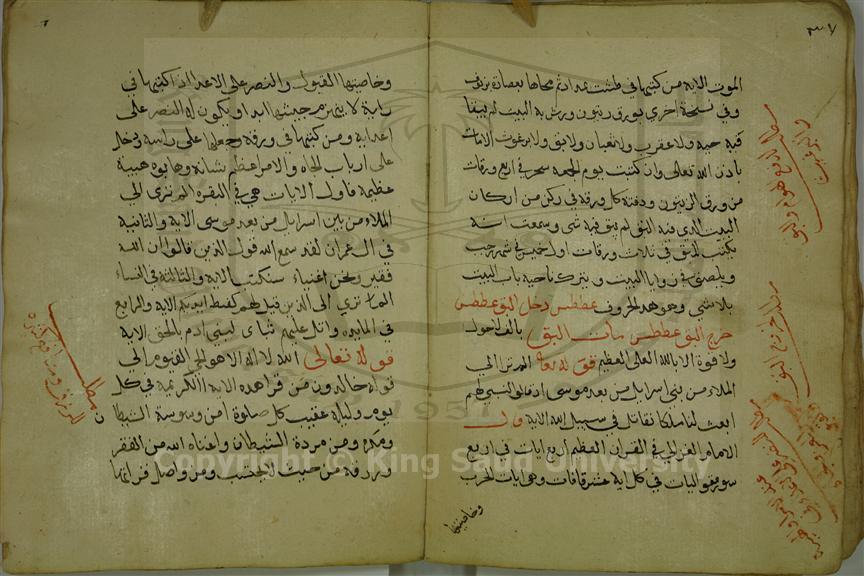 ٣٧
الموت الاية من كتبها في طشت ثم محاها بعصارة
وفي نسخة اخرى بورق زيتون ورش به البيت لم يبقا
فيه حية ولا عقرب ولا ثعبان ولا بق ولا برغوث الا مات
باذن الله تعالى وان كتبت يوم الجمعه سحر في اربع ورقات
من ورق الزيتون ودفنة كل ورقة في ركن من اركان
البيت الذي فيه البق لم يبق فيه شي وسمعت انه
يكتب للبق في ثلاث ورقات اول خميس في شهر رجب
ويلصق في زوايا البيت ويترك ناحية باب البيت
بلا شي وهو هذه الحروف عططس دخل البق عططس
خرج البق عططس مات البق بالف لاحول
ولا قوة الا بالله العلي العظيم قوله تعا الم تر الى
الملاء من بني اسرايل من بعد موسى اذ قالوا لنبي لهم
ابعث لنا ملكا نقاتل في سبيل الله الاية قال
الامام الغزالي في القران العظيم اربع ايات في اربع
سور متواليات في كل اية عشر قافات وهي ايات الحرب
وخاصيتها
وخاصيتها القبول والنصر على الاعدا اذا كتبتها في
راية لا ينهزم جيشها ابدا ويكون له النصر على
اعدايه ومن كتبها في ورقة وجعلها على راسه ودخل
على ارباب الجاه والامر عظم شانه وهابوه هيبة
عظيمة فاول الايات هي في البقره الم تر الى
الملاء من بني اسرايل من بعد موسى الاية والثانية
في ال عمران لقد سمع الله قول الذين قالوا ان الله
فقير ونحن اغنياء سنكتب الاية والثالثة في النساء
الم تر الى الذين قيل لهم كفوا ايديكم الاية والرابع
في المايده واتل عليهم نبا ابني ادم بالحق الاية
قوله تعالى الله لا اله الا هو الحي القيوم الى
قوله خالدون من قرا هذه الاية الكريمة في كل
يوم وليلة عقيب كل صلوة امن وسوسة الشيطان
ومكره ومن مردة الشيطان واغناه الله من الفقر
ورزقه من حيث لا يحتسب ومن واصل قرائتها
Copyright © King Saud University
1957